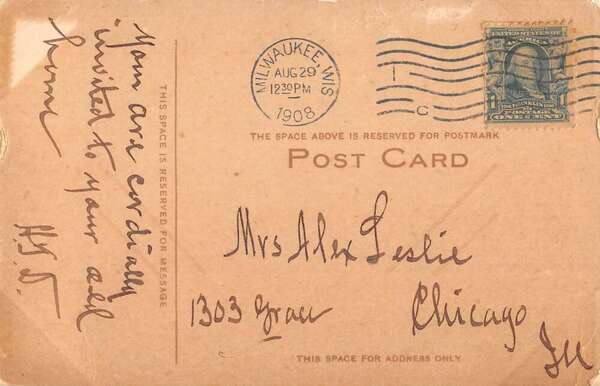 You are cordially
invited to your old
home
H.D.
THIS SPACE IS RESERVED FOR MESSAGE
MILWAUKEE, WIS
AUG 29
12 30 PM
1908
C
UNITED STATES OF
AMERICA
1 1
FRANKLIN
POSTAGE
ONE CENT
THE SPACE ABOVE IS RESERVED FOR POSTMARK
POST CARD
Mrs Alex Leslie
1303 Grace
Chicago
Ill
THIS SPACE FOR ADDRESS ONLY